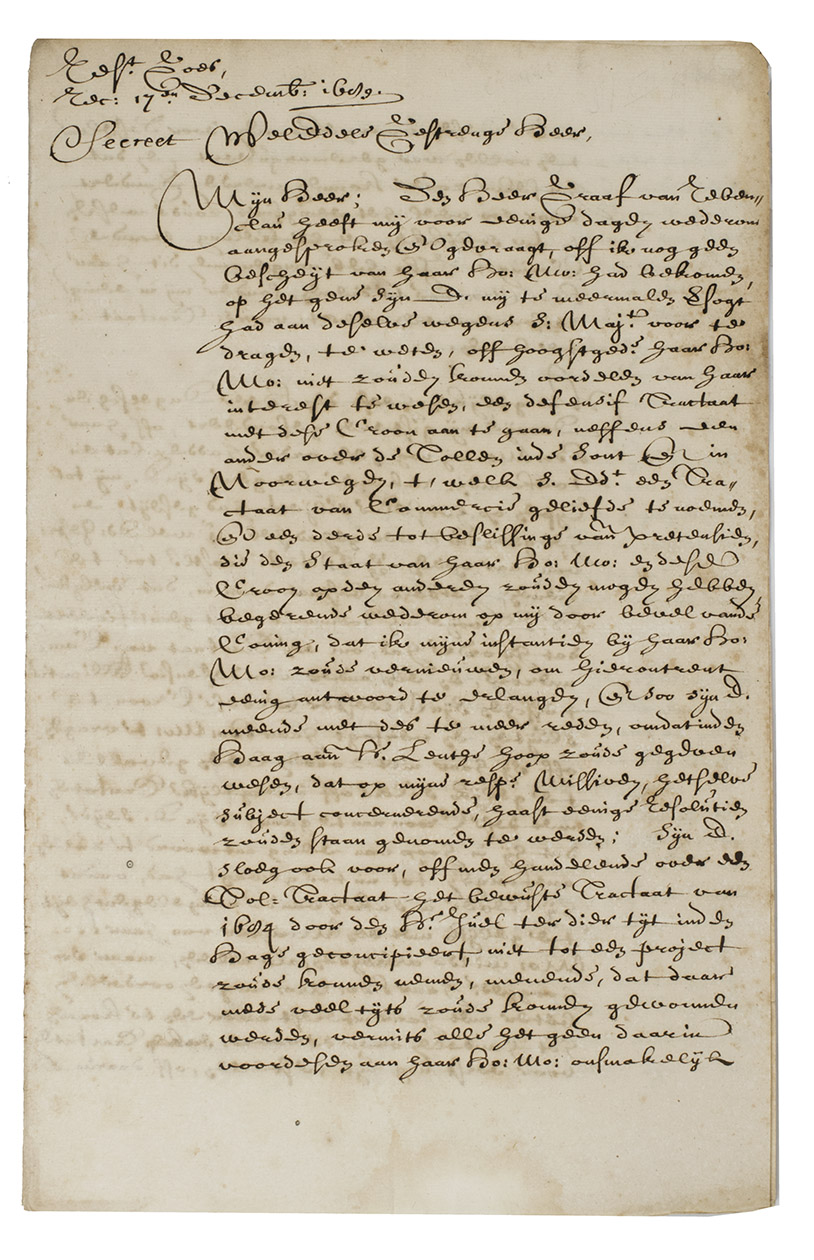 Rest. Goes,
Rec: 17en Decemb: 1689.
Secreet WelEdele Gestrenge Heer,
Mijn Heer; Den Heer Graaf van Reben„
clau heeft mij voor eenige dagen wederom
aangesproken en gevraagt, off ik nog geen
bescheyt van haar Ho: Mo: had bekomen,
op het gene Sijn E. mij te meermalen Versogt
had aan deselve wegens S: Majt. voor te
dragen, te weten, off hooghstgede. haar Ho:
Mo: niet zouden konnen oordelen van haar
interest te wesen, een defensif Tractaat
met dese Croon aan te gaan, neffens een
ander over de Tollen inde Sont en in
Noorwegen, t'welk S. Edt. een Tra„
ctaat van Commercie geliefde te noemen,
en een derde tot beslissinge van pretensien,
die den Staat van haar Ho: Mo: en dese
Croon op den anderen zouden mogen hebben,
begerende wederom op mij door bevel vande
Coning, dat ik mijne instantien bij haar Ho:
Mo: zoude vernieuwen, om hieromtrent
eenig antwoord te erlangen, en soo sijn E.
meende met des te meer reden, omdat inden
Haag aan Hr. Lenthe hoop zoude gegeven
wesen, dat op mijne respe. Missiven, hetselve
subject concernerende, haast eenige resolutien
zouden staan genomen te werden; Sijn E.
sloeg ook voor, off men handelende over een
Tol-Tractaat het bewuste Tractaat van
1684 door den Hr. Juel ter dier tijt inden
Hage geconcipieert, niet tot een project
zoude konnen nemen, menende, dat daar
mede veel tijts zoude konnen gewonnen
werden, vermits alle het geen daarin
voordesen aan haar Ho: Mo: onsmakelijk